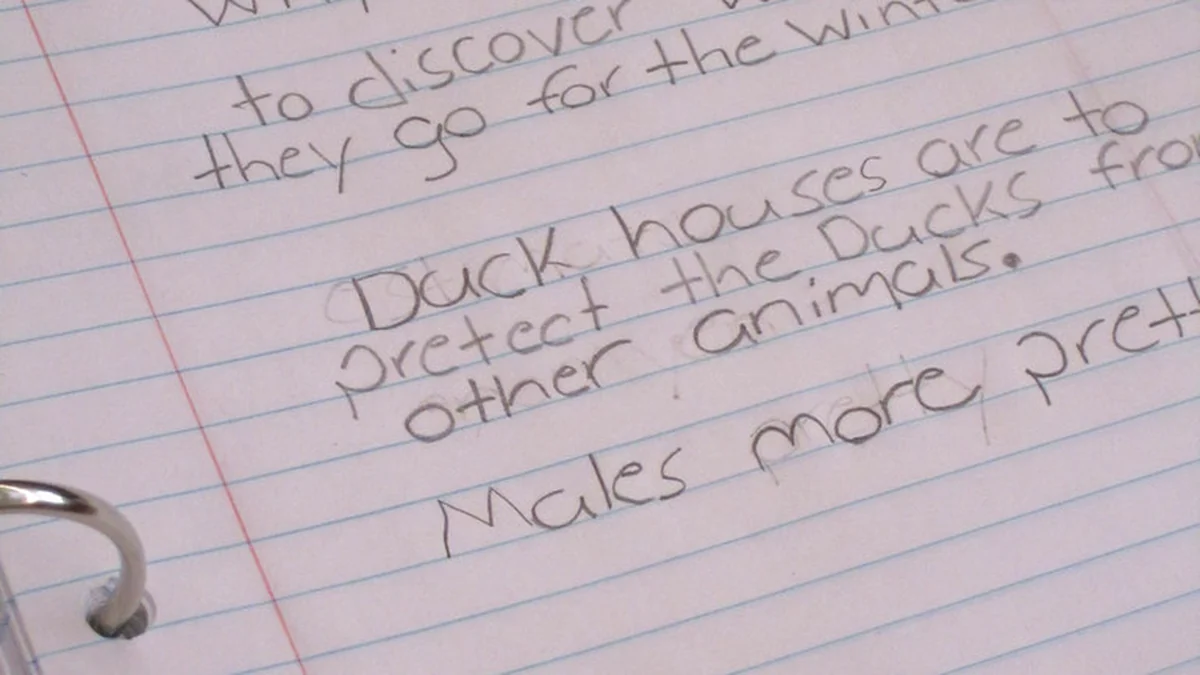 to discover
they go for the
Duck houses are to
pretect the Ducks
other animals.
Males more